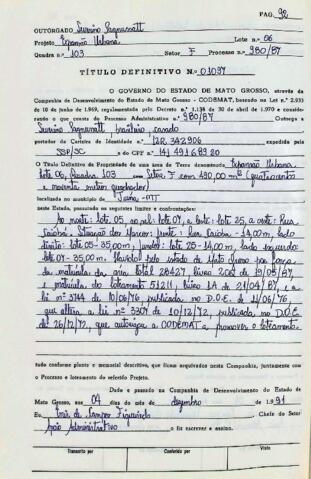 PAG. 92
OUTORGADO
Projeto Expansão Urbana Lote n.º 06
Quadra n.º 103 Setor F Processo n.º 980/87
TÍTULO DEFINITIVO N.º 01097
O GOVERNO DO ESTADO DE MATO GROSSO, através da
Companhia de Desenvolvimento do Estado de Mato Grosso - CODEMAT, baseado na Lei n.º 2.933
de 10 de junho de 1.969, regulamentada pelo Decreto n.º 1.138 de 30 de abril de 1.970 e considerando
o que consta do Processo Administrativo n.º 980/87 Outorga a
brasileiro, casado
portador da Carteira de Identidade n.º 12R.342906 expedida pela
SSP/SC e do CPF n.º 141.491.689.20
O Título Definitivo de Propriedade de uma área de Terra denominada Expansão Urbana
Lote 06, Quadra 103 com Setor F com 490,00 m² (quatrocentos
e noventa metros quadrados)
localizada no município de
neste Estado, passando as seguintes limites e confrontações:
Ao norte: lote 05, ao sul: lote 07, a leste: lote 25, a oeste: Rua
Cuiabá. Situação dos Marcos: frente: Rua Cuiabá - 14,00m, lado
direito: lote 05-35,00m, fundo: lote 25-14,00m, lado esquerdo:
lote 07-35,00m. Havido pelo Estado de Mato Grosso por força
da matrícula da área total 28427, livro 2 de 19/05/87,
matrícula do loteamento 51211, livro 1A de 21/04/87, e a
lei nº 3744 de 10/06/76, publicada no D.O.E. de 11/06/76,
que altera a lei nº 3307 de 10/12/72, publicada no D.O.E
de 26/12/72, que autoriza a CODEMAT a promover o loteamento.
tudo conforme planta e memorial descritivo, que ficam arquivados nesta Companhia, juntamente com
o Processo e loteamento do referido Projeto.
Dada e passada na Companhia de Desenvolvimento do Estado de
Mato Grosso, aos 04 dias do mês de dezembro de 1.991
Eu, de Campos Figueiredo, Chefe do Setor
Apoio Administrativo o fiz escrever e assino.
Transcrito por Conferido por Visto